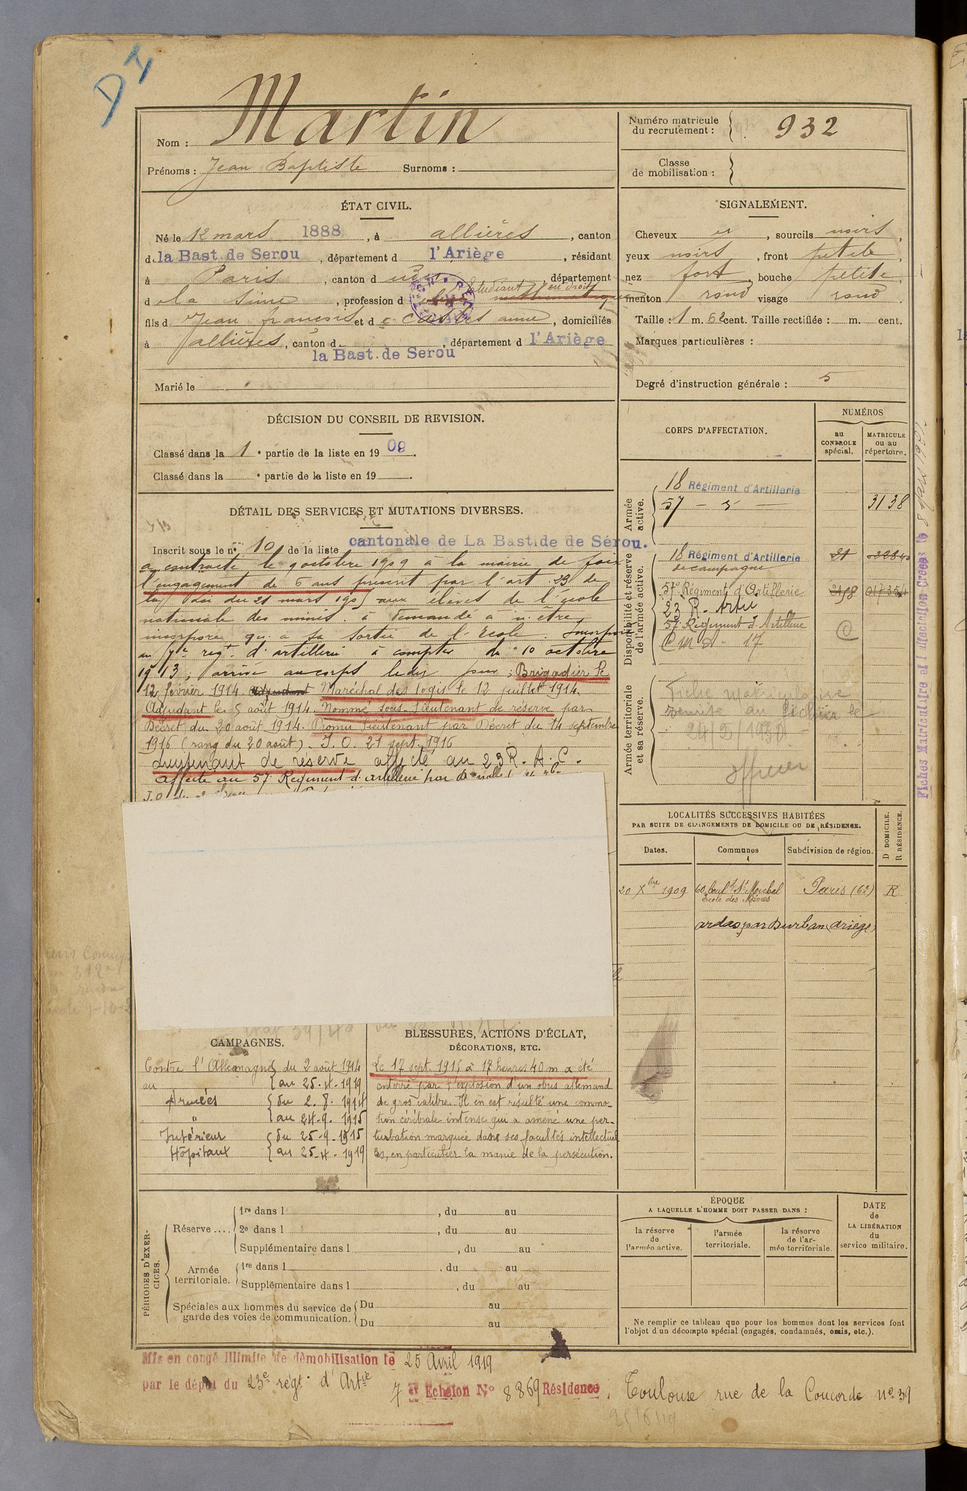 D I
Nom : Martin
Prénoms : Jean Baptiste Surnoms :
Numéro matricule du recrutement : 932
Classe de mobilisation :
ÉTAT CIVIL.
Né le 12 mars 1888, à allières, canton
d la Bast. de Serou, département d l'Ariège, résidant
à Paris, canton d, département
d la Seine, profession d étudiant en droit
fils d Jean françois et d anne, domiciliés
à allières, canton d la Bast. de Serou, département d l'Ariège
Marié le
SIGNALEMENT.
Cheveux, sourcils noirs,
yeux noirs, front petite,
nez fort, bouche petite
menton rond visage rond
Taille : 1 m. 62 cent. Taille rectifiée : m. cent.
Marques particulières :
Degré d'instruction générale : 5
DÉCISION DU CONSEIL DE REVISION.
Classé dans la 1 e partie de la liste en 1909.
Classé dans la e partie de la liste en 19 .
DÉTAIL DES SERVICES ET MUTATIONS DIVERSES.
Inscrit sous le n° 10 de la liste cantonale de La Bastide de Sérou.
a contracté le 9 octobre 1909 à la mairie de foix
l'engagement de 5 ans prescrit par l'art. 23 de
la loi du 21 mars 1905 aux élèves de l'école
nationale des mines. a demandé à n'être
incorporé qu'à sa sortie de l'Ecole. Incorporé
au régt d'artillerie à compter du 10 octobre
1913, arrivé au corps le dit jour, Brigadier le
12 février 1914. Adjudant Maréchal des logis le 12 juillet 1914.
Adjudant le 5 août 1914. Nommé sous-lieutenant de réserve par
Décret du 20 août 1914. Promu lieutenant par Décret du 14 septembre
1916 (rang du 20 août). J.O. 21 sept. 1916
Lieutenant de réserve affecté au 23 R.A.C.
Affecté au 57 Régiment d'artillerie par
CORPS D'AFFECTATION.
NUMÉROS
AU CONTROLE spécial.
MATRICULE OU AU répertoire.
Armée active.
18 Régiment d'Artillerie
57 3138
Disponibilité et réserve de l'armée active.
18 Régiment d'Artillerie
de campagne
57e Régiment d'Artillerie
23 R. Artie
57 Régiment d'Artillerie
C m a 17
Armée territoriale et sa réserve.
Fiche matriculaire
remise au fichier le
24/5/1930
officier
LOCALITÉS SUCCESSIVES HABITÉES
PAR SUITE DE CHANGEMENTS DE DOMICILE OU DE RÉSIDENCE.
Dates. Communes Subdivision de région. D DOMICILE. R RÉSIDENCE.
20 Xbre 1909 60 boul. St Michel Paris R
Ecole des Mines
CAMPAGNES.
Contre l'Allemagne du 2 août 1914
au 25-4-1919
Armées du 2. 8. 1914
" au 24-9. 1915
Intérieur du 25-9-1915
Hôpitaux au 25-4-1919
BLESSURES, ACTIONS D'ÉCLAT,
DÉCORATIONS, ETC.
Le 17 sept. 1915 à 17 heures 40 m a été
enterré par l'explosion d'un obus allemand
de gros calibre. Il en est résulté une commo-
tion cérébrale intense qui a amené une per-
turbation marquée dans ses facultés intellectuel
les, en particulier la manie de la persécution.
PÉRIODES D'EXERCICES.
Réserve.... 1re dans l , du au
2e dans l , du au
Supplémentaire dans l , du au
Armée territoriale. 1re dans l , du au
Supplémentaire dans l , du au
Spéciales aux hommes du service de garde des voies de communication. Du au
Du au
ÉPOQUE
A LAQUELLE L'HOMME DOIT PASSER DANS :
la réserve de l'armée active.
l'armée territoriale.
la réserve de l'armée territoriale.
DATE de LA LIBÉRATION du service militaire.
Ne remplir ce tableau que pour les hommes dont les services font
l'objet d'un décompte spécial (engagés, condamnés, omis, etc.).
Mis en congé illimité de démobilisation le 25 Avril 1919
par le dépôt du 23e régt d'Artie 7 Echelon N° 8869 Résidence. Toulouse rue de la Concorde n° 39